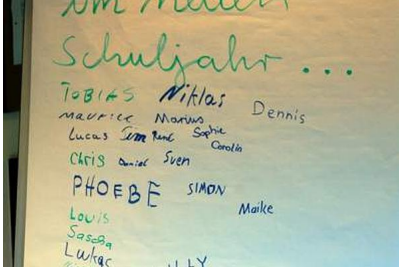 neuen
Schuljahr ...
TOBIAS Niklas Dennis
Maurice Marius
Lucas Tim René Sophie
Carolin
Chris Daniel Sven
PHOEBE SIMON
Maike
Louis
Sascha
Lukas